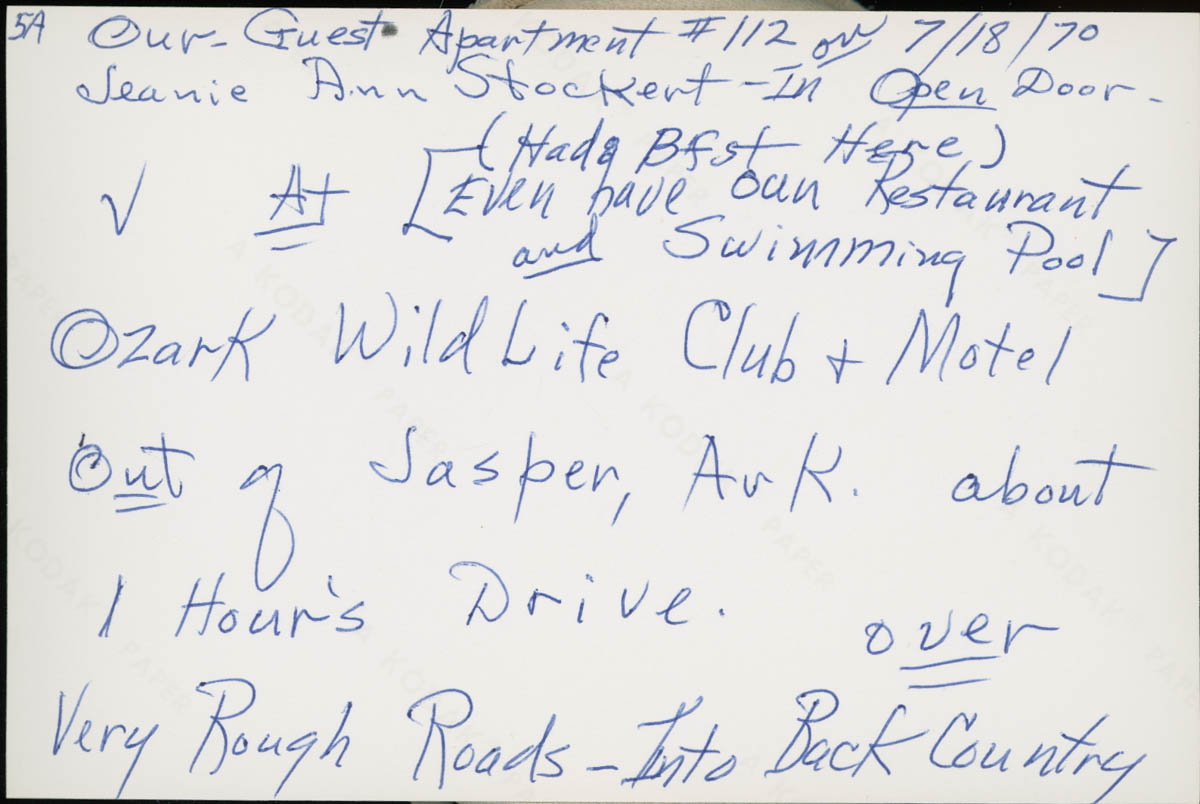 5A Our- Guest Apartment #112 on 7/18/70
Jeanie Ann Stockert - In Open Door -
(Hada Bfst Here)
√ At [Even have oun Restaurant
and Swimming Pool]
Ozark Wild Life Club + Motel
Out of Jasper, Ark. about
1 Hour's Drive. over
Very Rough Roads - Into Back Country